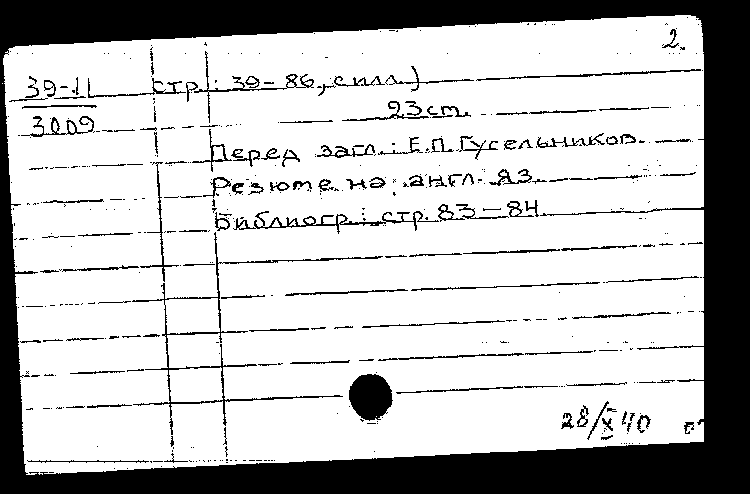 2.
39-11
3009
стр.: 39-86, с илл.)
23 cm.
Перед загл.: Е.П. Гусельников.
Резюме на англ. яз.
Библиогр.: стр. 83-84.
28/X 40